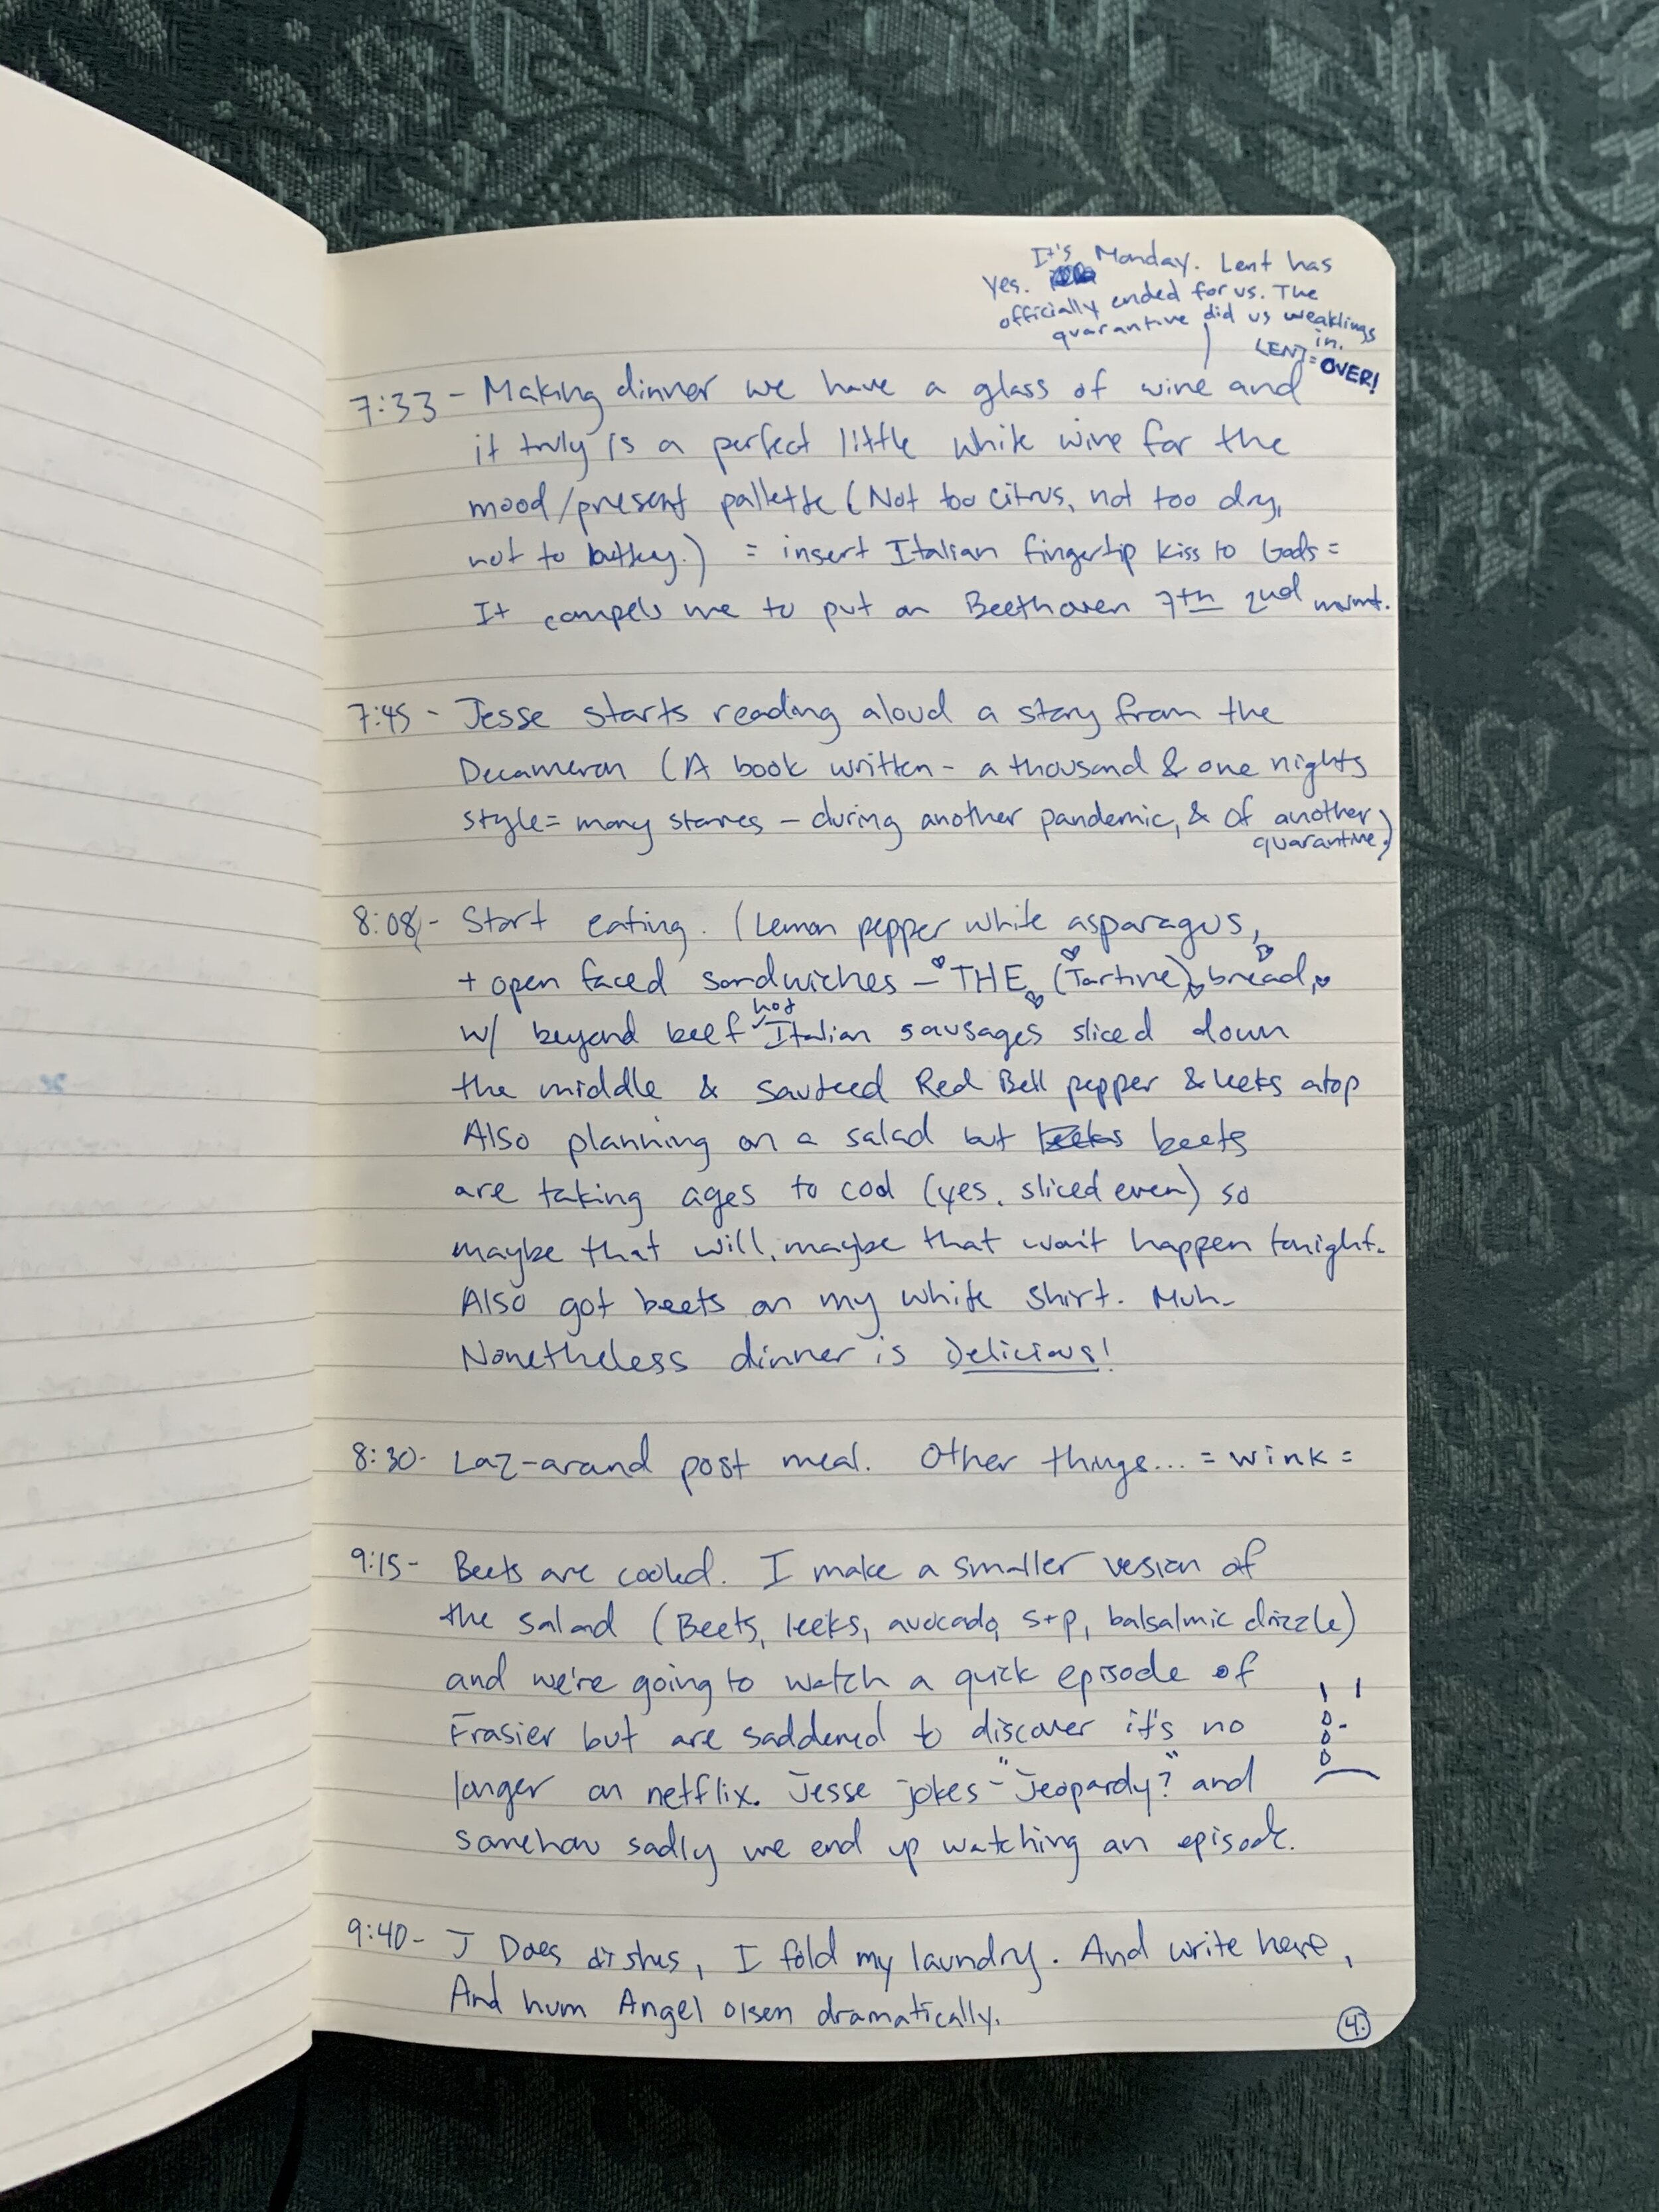 It's Monday. Lent has
Yes.
officially ended for us. The
quarantine did us weaklings
in.
LENT = OVER!
7:33 - Making dinner we have a glass of wine and
it truly is a perfect little white wine for the
mood/present pallette (Not too citrus, not too dry,
not to buttery.) = insert Italian fingertip kiss to Gods =
It compels me to put on Beethoven 7th 2nd mvmt.
7:45 - Jesse starts reading aloud a story from the
Decameron (A book written - a thousand & one nights
style = many stories - during another pandemic, & of another
quarantine)
8:08 - Start eating. (Lemon pepper white asparagus,
+ open faced sandwiches - THE (Tartine) bread,
hot
w/ beyond beef Italian sausages sliced down
the middle & sauteed Red Bell pepper & leeks atop
Also planning on a salad but leeks beets
are taking ages to cook (yes, sliced even) so
maybe that will, maybe that won't happen tonight.
Also got beets on my white shirt. Muh-
Nonetheless dinner is Delicious!
8:30 - Laz-around post meal. Other things... = wink =
9:15 - Beets are cooked. I make a smaller version of
the salad (Beets, leeks, avocado, s+p, balsalmic drizzle)
and we're going to watch a quick episode of
Frasier but are saddened to discover it's no
longer on netflix. Jesse jokes - "Jeopardy?" and
somehow sadly we end up watching an episode.
9:40 - J Does dishes, I fold my laundry. And write here,
And hum Angel Olsen dramatically.
4.